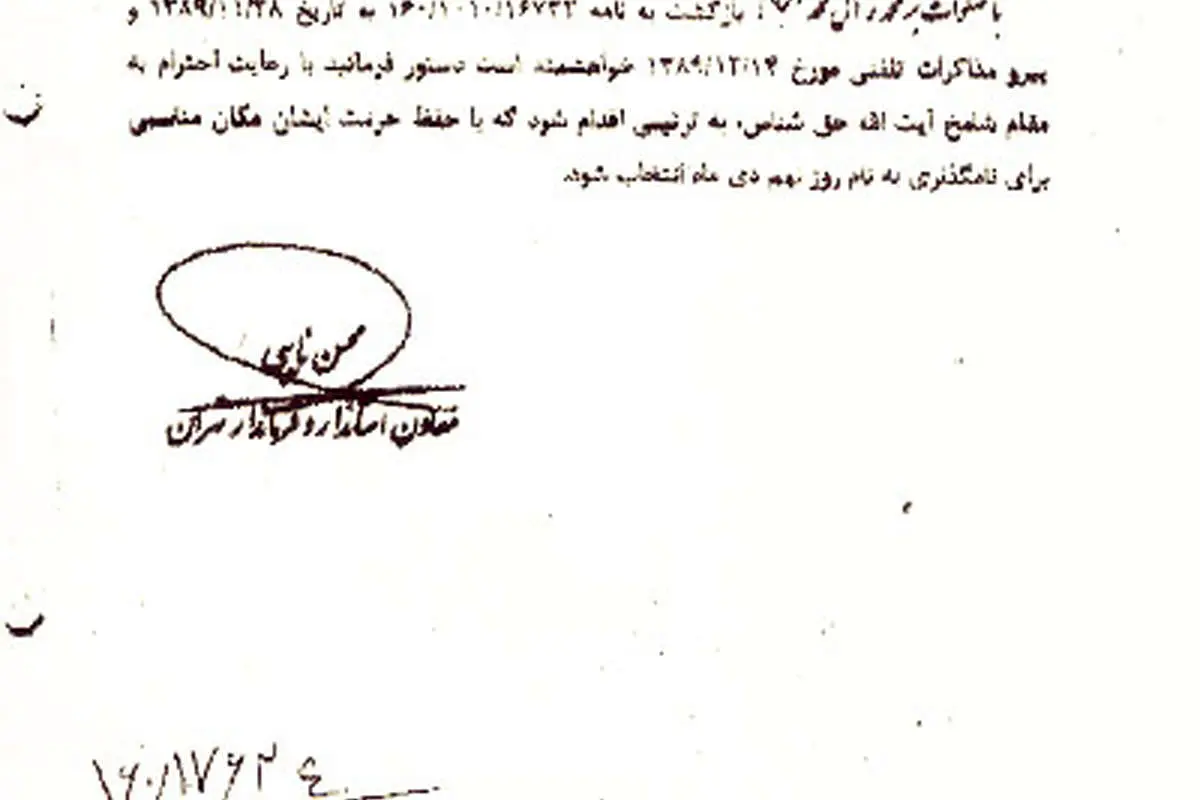 با صلوات بر محمد و آل محمد؛ بازگشت به نامه ۱۶۰/۱۰۱۰/۱۶۷۳۳ به تاریخ ۱۳۸۹/۱۱/۲۸ و
پیرو مذاکرات تلفنی مورخ ۱۳۸۹/۱۲/۱۴ خواهشمند است دستور فرمائید با رعایت احترام به
مقام شامخ آیت الله حق شناس، به ترتیبی اقدام شود که با حفظ حرمت ایشان مکان مناسبی
برای نامگذاری به نام روز نهم دی ماه انتخاب شود.
محسن نایبی
معاون استاندار و فرماندار تهران
۱۶۰/۱۷۶۲۴